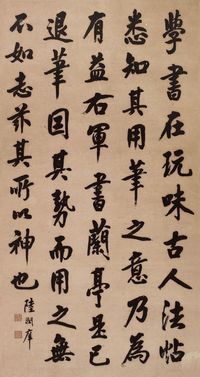 學書在玩味古人法帖
悉知其用筆之意乃為
有益右軍書蘭亭是已
退筆因其勢而用之無
不如志茲其所以神也
陸潤庠